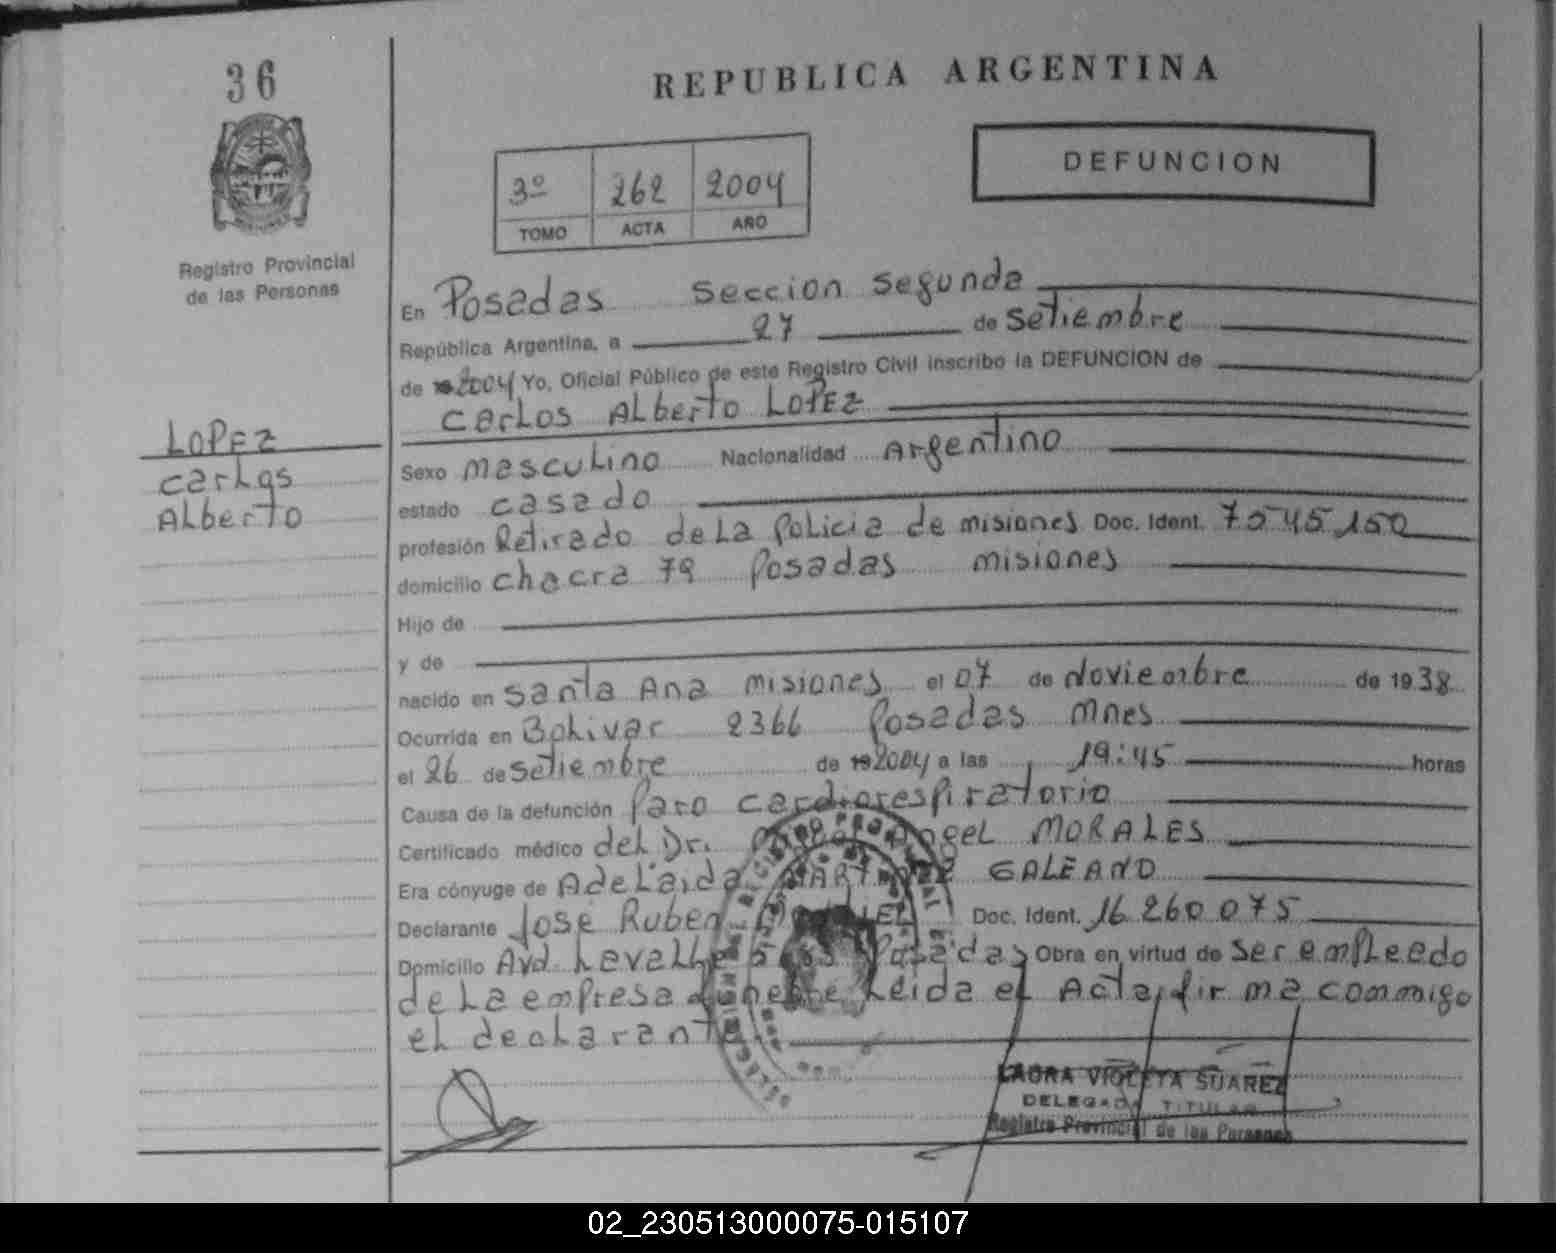 36
REPUBLICA ARGENTINA
DEFUNCION
3º 262 2004
TOMO ACTA AÑO
Registro Provincial
de las Personas
En Posadas Seccion Segunda
República Argentina, a 27 de Setiembre
de 2004 Yo, Oficial Público de este Registro Civil inscribo la DEFUNCION de
Carlos Alberto LOPEZ
LOPEZ
Carlos
Alberto
Sexo masculino Nacionalidad Argentino
estado casado
profesión Retirado de La Policia de misiones Doc. Ident. 7545150
domicilio chacra 79 Posadas misiones
Hijo de
y de
nacido en Santa Ana misiones el 07 de Noviembre de 1938
Ocurrida en Bolivar 2366 Posadas Mnes
el 26 de Setiembre de 2004 a las 19:45 horas
Causa de la defunción Paro cardiorespiratorio
Certificado médico del Dr. Angel MORALES
Era cónyuge de Adelaida GALEANO
Declarante José Ruben Doc. Ident. 16260075
Domicilio Avd. Lavalle Posadas Obra en virtud de ser empleado
de La empresa funebre Leida el Acta, firma conmigo
el declarante
LAURA VIOLETA SUAREZ
DELEGADA TITULAR
Registro Provincial de las Personas
02_230513000075-015107